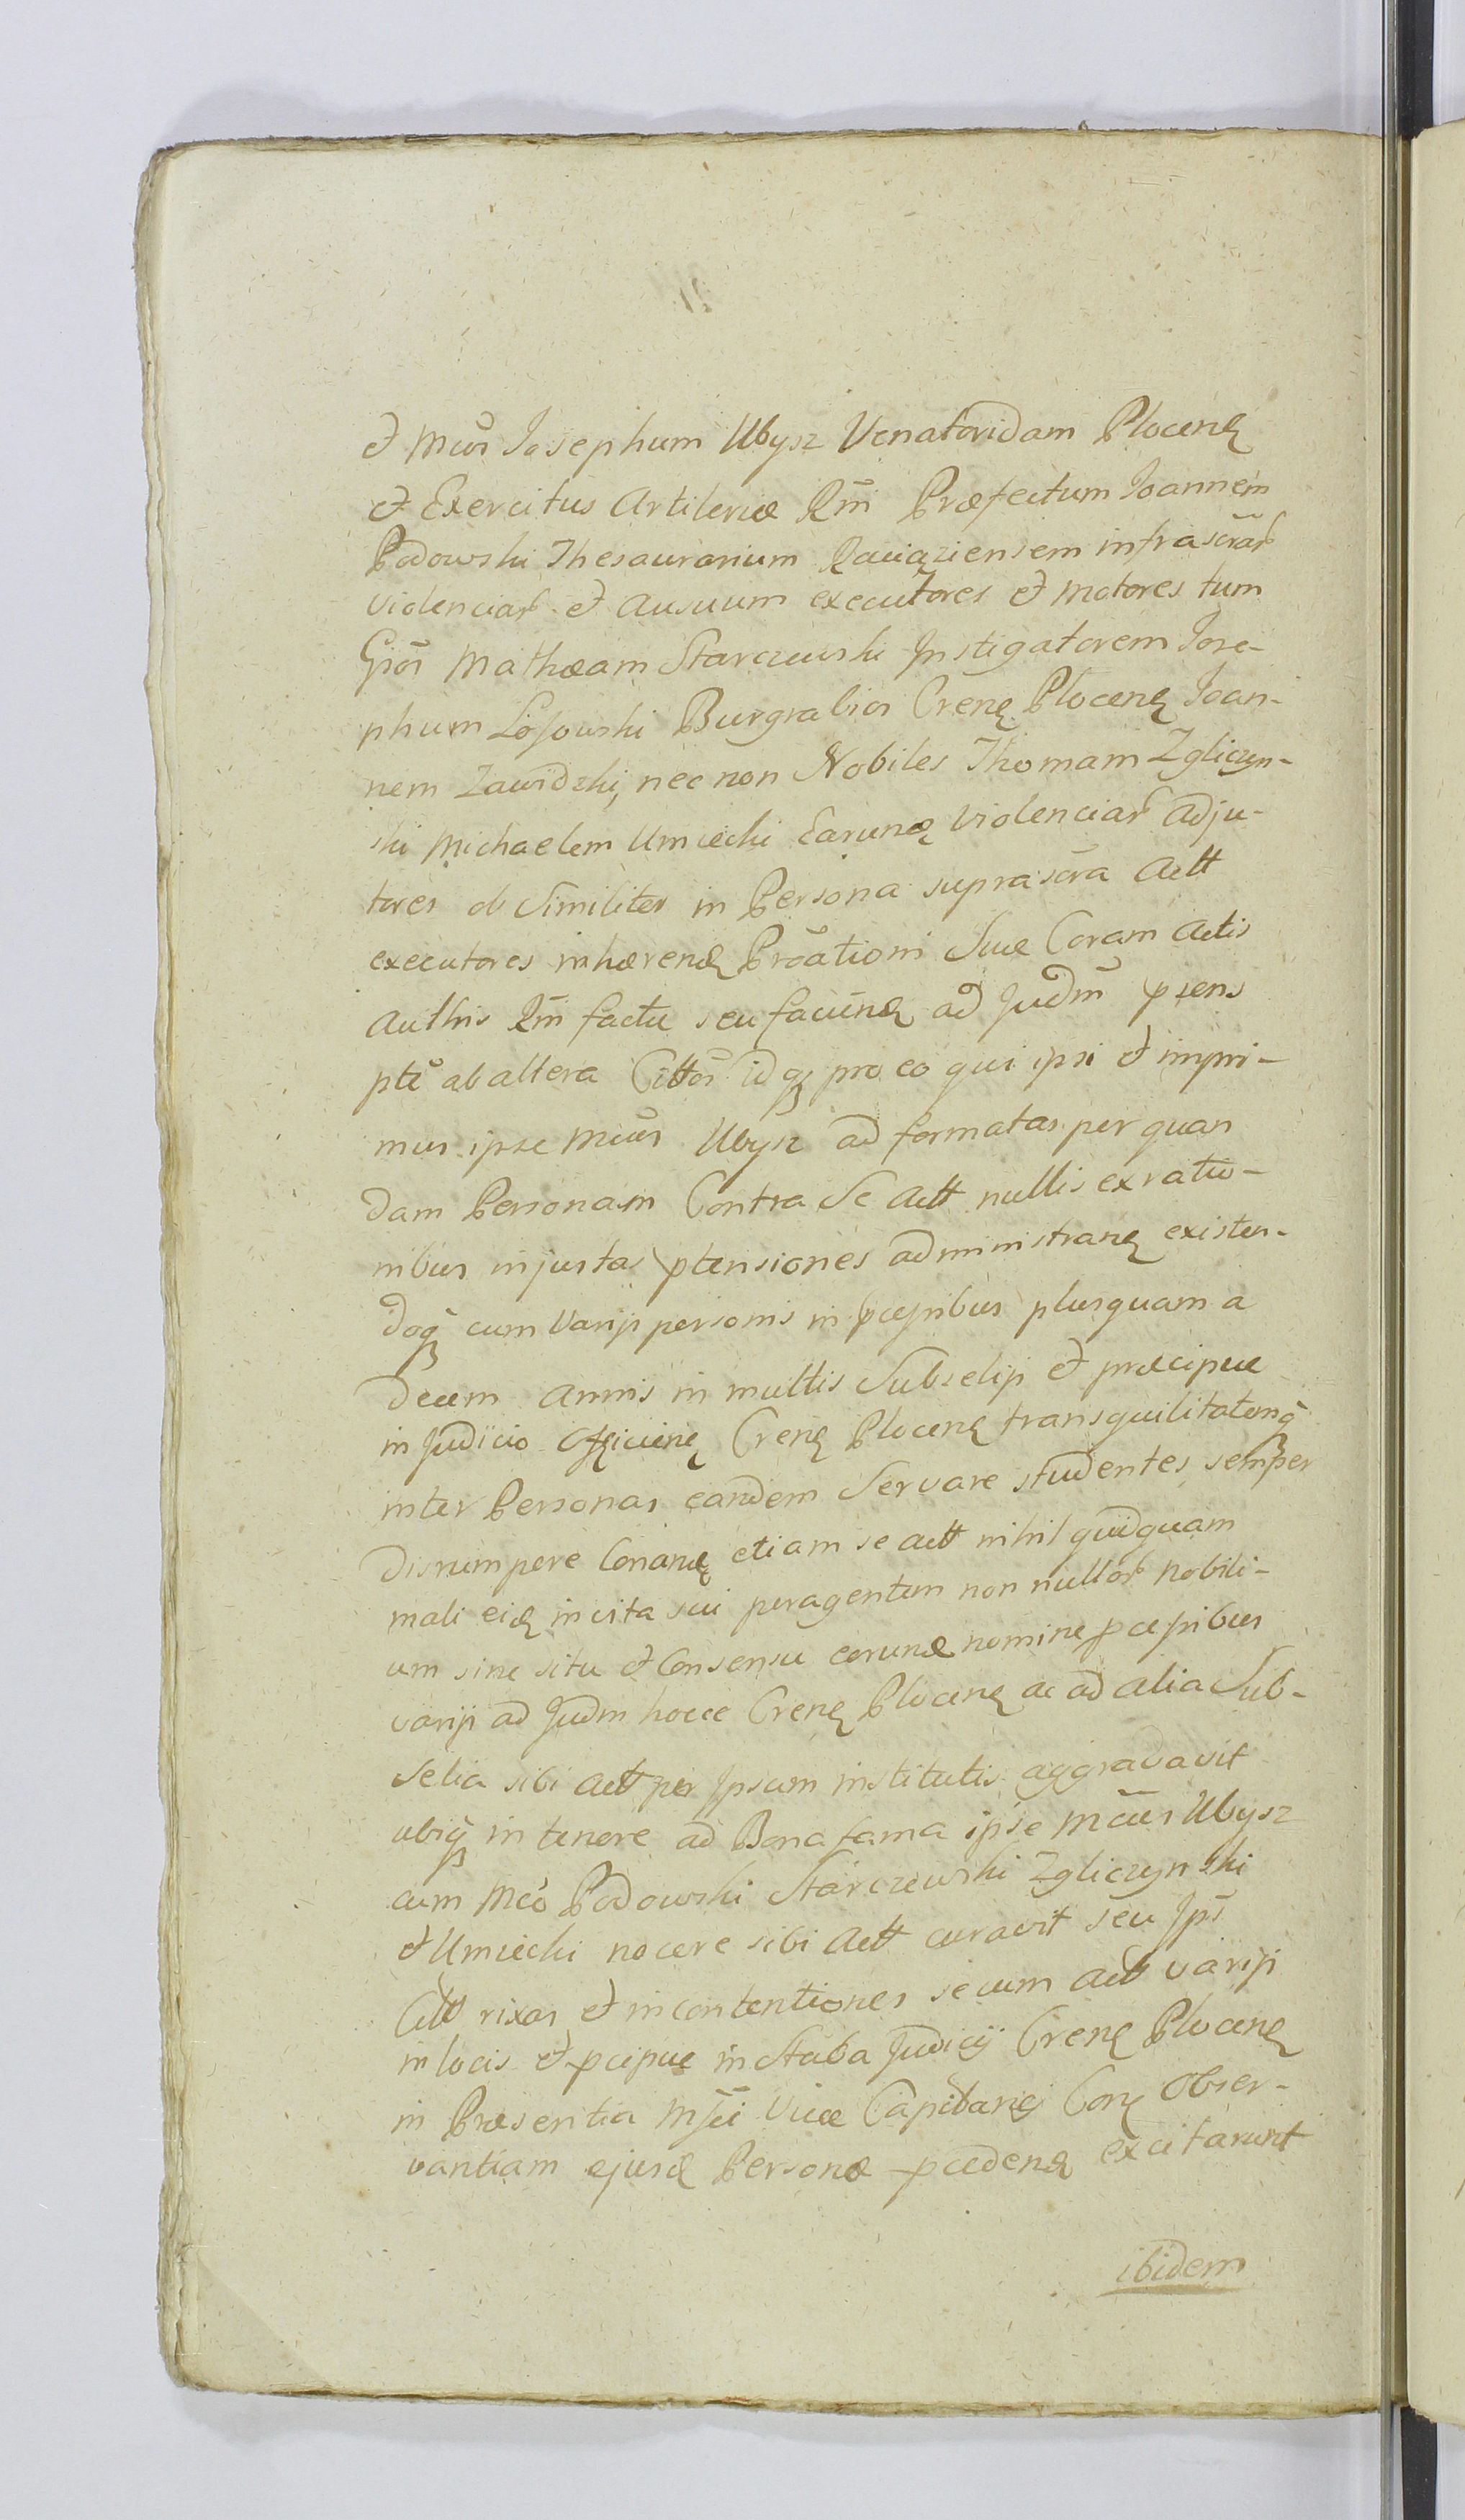 et Mcos Josephum Ubysz Venatoridam Plocenę
et Exercitus Artileriæ Rni Præfectum Joannem
Podowski Thesaurarium Raciąziensem infrascrar
violenciar et Ausuum executores et Motores tum
Gios Mathæam Starczewski Instigatorem Jose-
phum Łosowski Burgrabios Crenę Plocenę Joan-
nem Zawidzki, nec non Nobiles Thomam Zgliczyn-
ski Michaelem Umiecki Earunę violenciar Adju-
tores ob Similiter in Persona suprascra Actt
executores inhærenę Proationi Suæ Coram Actis
Authis Rni factæ seu facienę ad Judm psens
pte ab altera Cittos idq pro eo qui ipsi et impri-
mus ipse Mcus Ubysz ad formatas per quan
dam Personam Contra Se Actt nullis ex ratio-
nibus injustas ptensiones administranę existen-
doq cum Varijs personis in pcessibus plusquam a
decem Annis in multis Subselijs et præcipue
in Judicio Officienę Crenę Plocenę transquilitatemq
inter Personas eandem Servare studentes semper
disrumpere Conanę etiam se actt nihil quidquam
mali eidę in vita sui peragentem non nullor Nobili-
um sine situ et Consensu eorunę nomine pcessibus
varijs ad Judm hocce Crenę Plocenę ac ad alia Sub-
selia sibi Actt per Ipsum institutis aggravavit
ubiq in tenore ad Bona fama ipse Mcus Ubysz
cum Mco Podowski Starczewski Zgliczynski
et Umiecki nocere sibi Actt curavit seu Ips
Citt rixas et in contentiones secum Actt varijs
in locis et pcipue in Stuba Judicij Crenę Plocenę
in Præsentia Msci Vice Capitanej Conę Obser-
vantiam ejusdę Personæ pcedenę excitarunt
ibidem